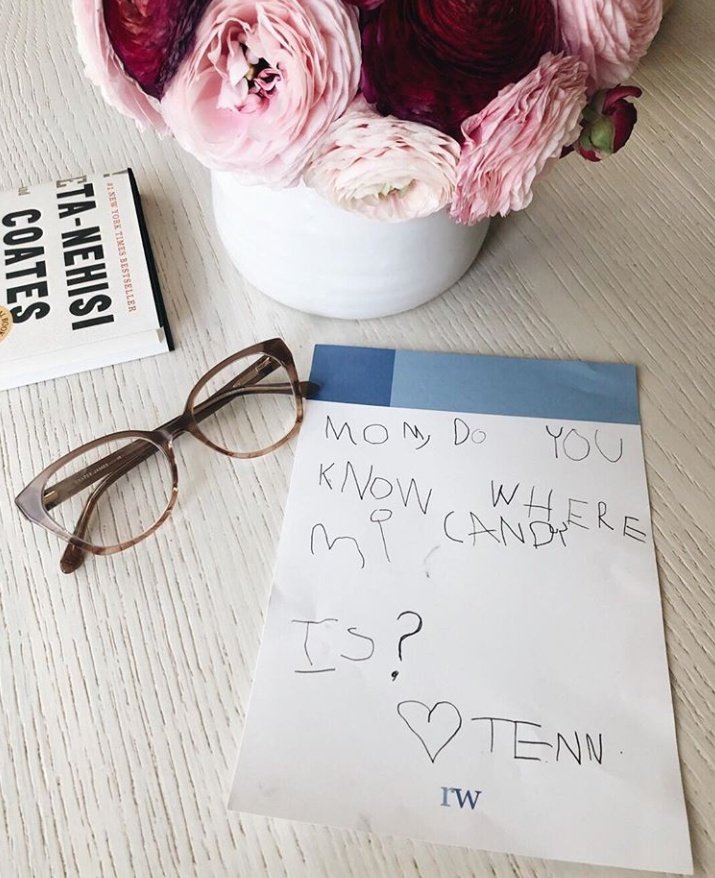 #1 NEW YORK TIMES BESTSELLER
TA-NEHISI
COATES
MOM, DO YOU
KNOW WHERE
Mi CANDY
IS?
♡ TENN.
rw